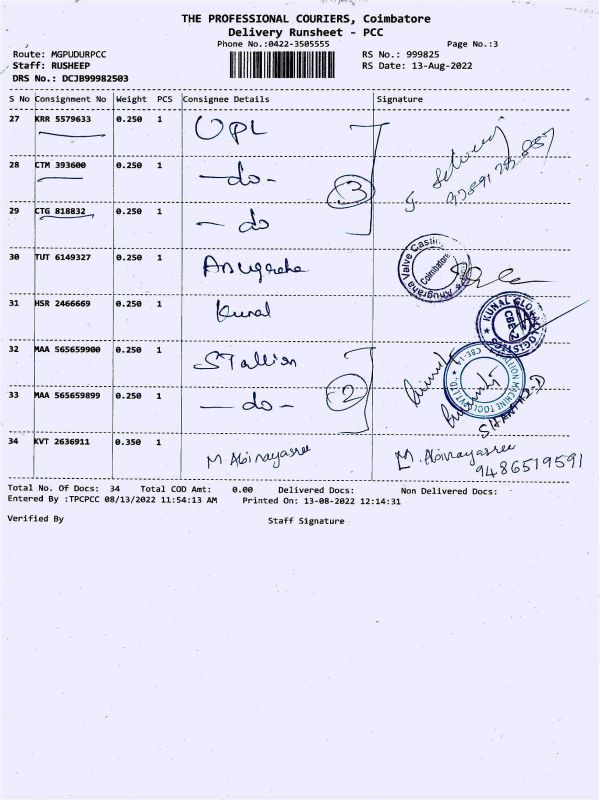 THE PROFESSIONAL COURIERS, Coimbatore
Delivery Runsheet - PCC
Phone No.:0422-3505555
Page No.:3
Route: MGPUDURPCC
RS No.: 999825
Staff: RUSHEEP
RS Date: 13-Aug-2022
DRS No.: DCJB99982503
S No Consignment No Weight PCS Consignee Details Signature
27 KRR 5579633 0.250 1 UPL
28 CTM 393600 0.250 1 -do-
3
29 CTG 818832 0.250 1 - do
30 TUT 6149327 0.250 1 Anugraha
Anugraha Valve Castin
Coimbatore
31 HSR 2466669 0.250 1 Kunal
KUNAL GLOBAL LOGISTICS
CBE-2
32 MAA 565659900 0.250 1 STallion
2
33 MAA 565659899 0.250 1 -do-
MACHINE TOOLS
34 KVT 2636911 0.350 1 M Abinayasree M. Abinayasree
9486519591
Total No. Of Docs: 34 Total COD Amt: 0.00 Delivered Docs: Non Delivered Docs:
Entered By :TPCPCC 08/13/2022 11:54:13 AM Printed On: 13-08-2022 12:14:31
Verified By Staff Signature